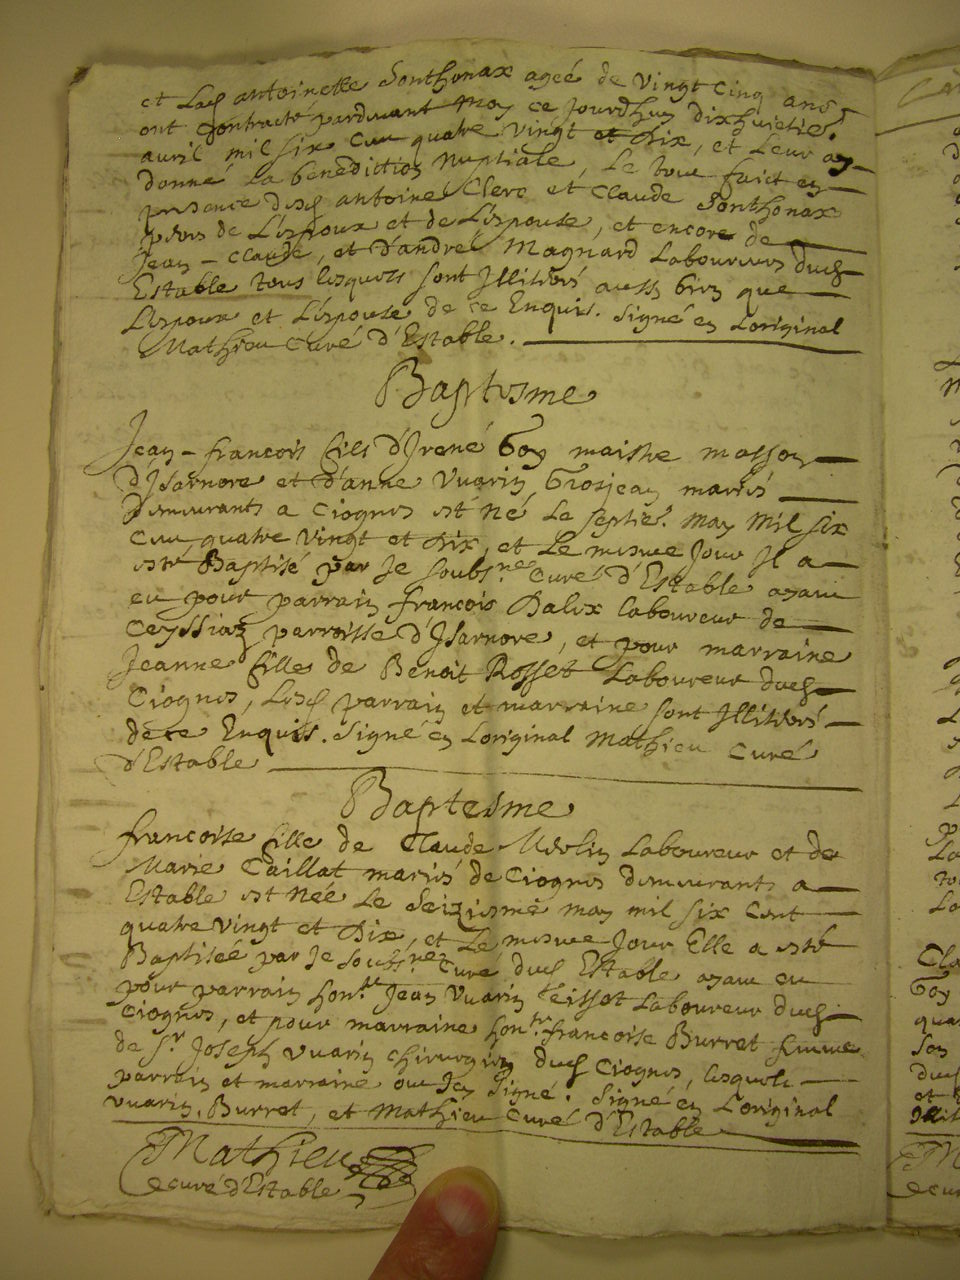 et Lad antoinette Sonthonax ageé de Vingt Cinq ans
ont Contracté pardevant Moy ce Jourdhuy dixhuictie.
avril mil six Cen quatre vingt et dix, et Leur ay
donné La benediction Nuptiale, Le tout faict en
presence desd antoine Clerc et Claude Sonthonax
peres de L'espoux et de L'espouse, et encore de
Jean-Claude, et d'andre Magnard Laboureurs dud
Estable tous lesquels sont Illiterés aussy bien que
L'espoux et L'espouse de ce Enquis. Signé en L'original
Mathieu Curé d'Estable.
Baptesme
Jean-francois fils d'Irené Goy maistre masson
d'Isarnore et d'anne Vuarin Grosjean mariés
demeurants a Ciognes est Né Le septie. May Mil six
Cen quatre Vingt et dix, et Le mesme Jour Il a
esté Baptisé par Je soubs.nes Curé d'Estable ayant
eu pour parrain francois Dalex laboureur de
Ceyssiaz parroisse d'Isarnore, et pour marraine
Jeanne fille de Benoit Rosset Laboureur dud
Ciognes, Lesd parrain et marraine sont Illiterés
de ce Enquis. Signé en L'original Mathieu Curé
d'Estable
Baptesme
francoise fille de Claude Laboureur et de
Marie Caillat mariés de Ciognes demeurants a
Estable est Née Le Seiziesme may mil six Cent
quatre Vingt et dix, et Le mesme Jour Elle a esté
Baptiseé par Je soubs.nes Curé dud Estable ayant eu
pour parrain hon.te Jean Vuarin Laboureur dud
Ciognes, et pour marraine hon.te francoise Burret femme
de s.r Joseph Vuarin Chirurgien dud Ciognes, lesquels
parrain et marraine ont Icy signé. Signé en L'original
Vuarin, Burret, et Mathieu Curé d'Estable
Mathieu
curé d'Estable